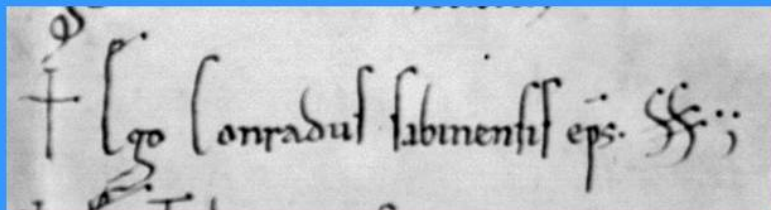 † Ego Conradus sabinensis ep̄s. SS.